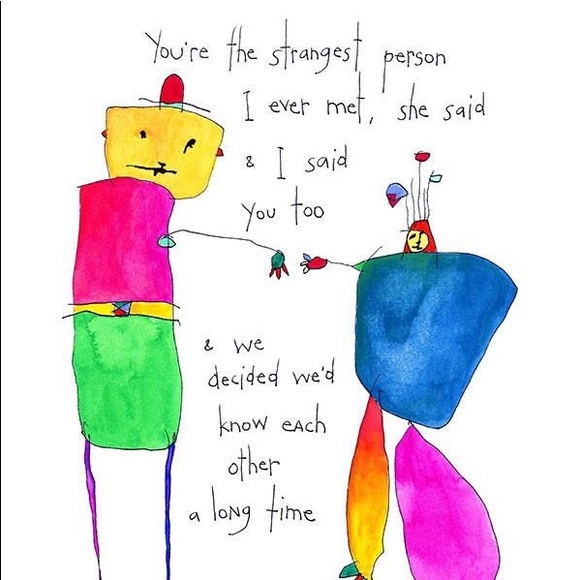 You're the strangest person
I ever met, she said
& I said
you too
& we
decided we'd
know each
other
a long time